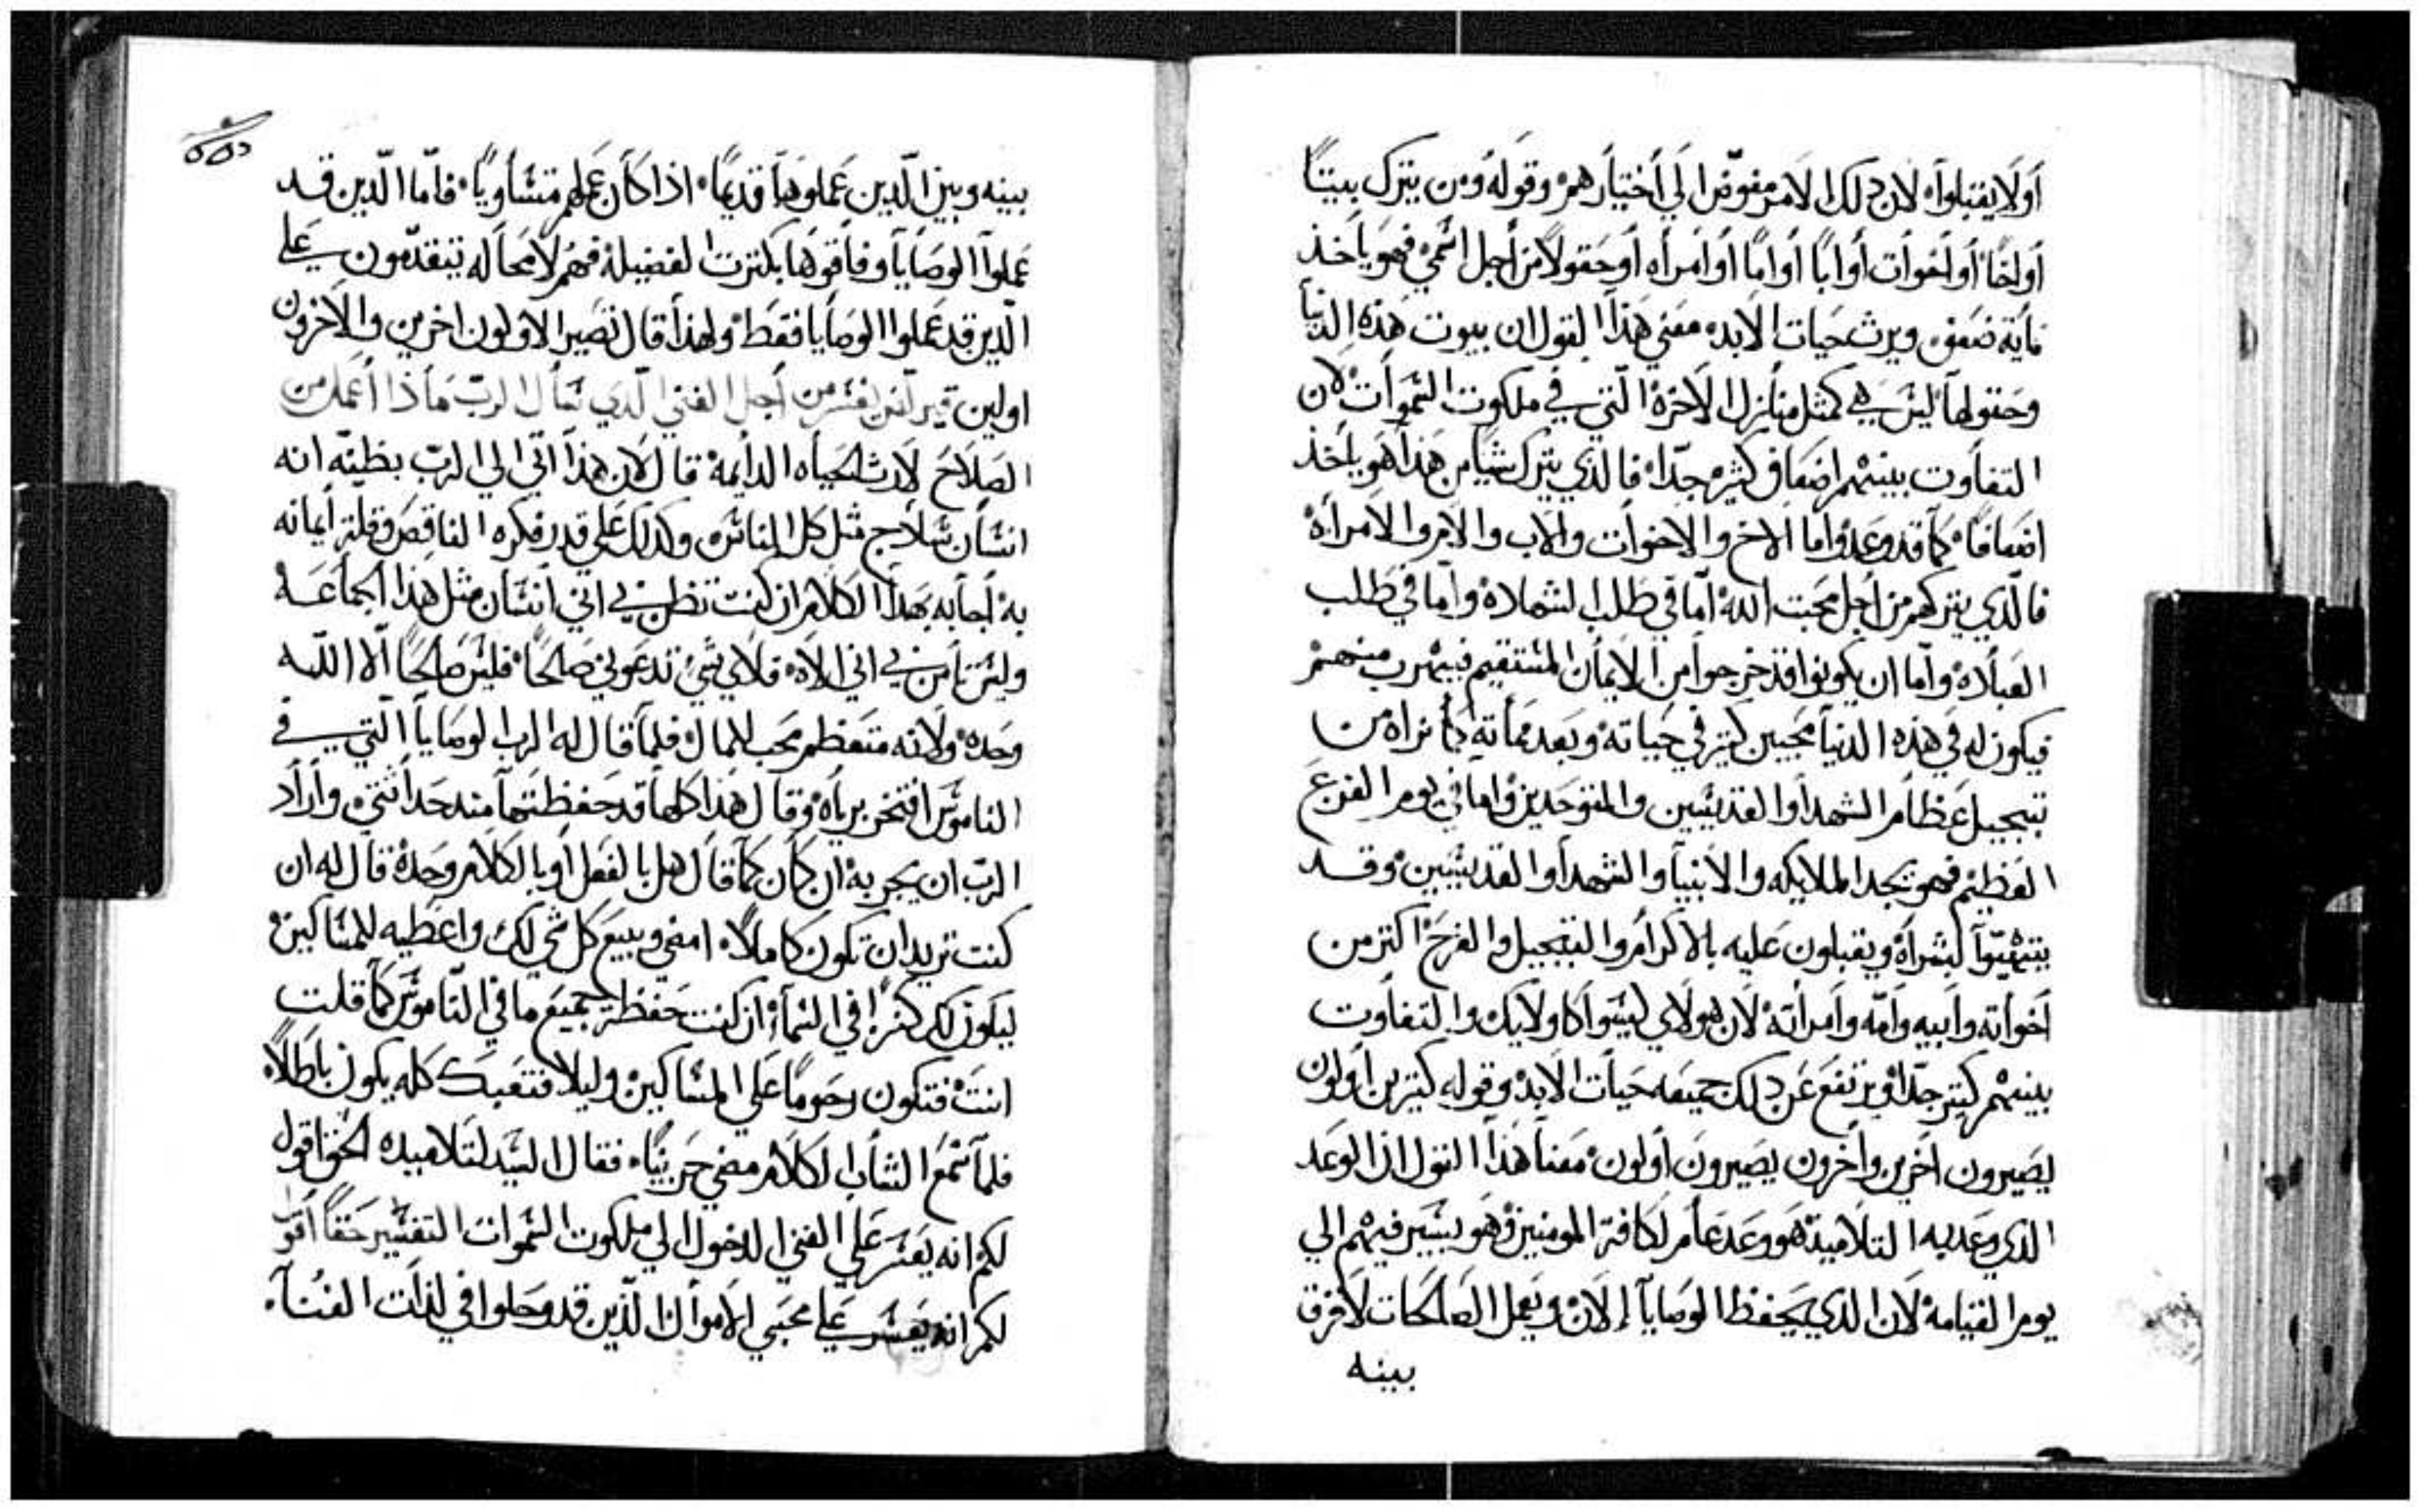 أولا يقبلوا لان دلك الامر مفوضا الي أختيارهم وقوله ومن يترك بيتا
أو اخا أو أخوات أو ابا أو اما أو أمراه أو حقولا من أجل اسمي فهو ياخذ
مأية ضعف ويرث حيات الابد معني هذا القول ان بيوت هذه الدنيا
وحقولها ليس هي كمثل منازل الاخرة التي في ملكوت السموات لان
التفاوت بينهم اضعاف كثيره جدا فالذي يترك شيا من هذا هو ياخذ
اضعافا كما قد وعد واما الاخ والاخوات والاب والام والامرأة
فالذي يتركهم من أجل محبت الله اما في طلب الشهاده واما في طلب
العباده واما ان يكونوا قد خرجوا من الايمان المستقيم فيهرب منهم
فيكون له في هذه الدنيا محبين كتير في حياته وبعد مماته كما نراه من
تبجيل عظام الشهدا والقديسين والمتوحدين واما في يوم الفزع
العظيم فهو يجد الملايكه والانبيا والشهدا والقديسين وقد
يتهيوا لبشراه ويقبلون عليه بالاكرام والتبجيل والفرح اكتر من
أخواته وابيه وامه وامراته لان هولاي ليسوا كاولايك والتفاوت
بينهم كتير جدا ويرتفع عن دلك جميعه حيات الابد وقوله كتيرين أولون
يصيرون اخرين واخرون يصيرون أولون معنا هذا القول ان الوعد
الذي وعد به التلاميذ هو وعد عام لكافة المومنين وهو يشير فيهم الي
يوم القيامة لان الذي يحفظ الوصايا إلان ويعمل الصالحات لا فرق
بينه
بينه وبين الذين عملوها قديما اذا كان عملهم متساويا فاما الذين قد
عملوا الوصايا وفاقوها بكترت الفضيلة فهم لا محاله يتقدمون علي
الذين قد عملوا الوصايا فقط ولهذا قال تصير الاولون اخرين والاخرون
اولين من أجل الغني الذي سأل الرب ماذا أعمل من
الصلاح لارث الحياه الدايمة قال لان هذا اتي الي الرب بظنه انه
انسان سادج مثل كل الناس وكدلك علي قدر فكره الناقص وقلة أيمانه
به أجابه بهدا الكلام ان كنت تظن في اني انسان مثل هذا الجماعه
وليس تامن في اني الاه فلاي شي تدعوني صالحا فليس صالحا الا الله
وحده ولانه متعظم محب للمال فلما قال له الرب الوصايا التي في
الناموس افتخر برياه وقال هذا كلها قد حفظتها مند حداثتي وأراد
الرب ان يجربه ان كان كما قال هل بالفعل أو بالكلام وحده قال له ان
كنت تريد ان تكون كاملا امضي وبيع كل شي لك واعطيه للمساكين
ليكون لك كنزا في السماء ان كنت حفظت جميع ما في الناموس كما قلت
انت فتكون رحوما علي المساكين وليلا فتعبك كله يكون باطلا
فلما سمع الشاب الكلام مضي حزينا فقال السيد لتلاميده الحق اقول
لكم انه يعسر علي الغني الدخول الي ملكوت السموات التفسير حقا أقول
لكم انه يعسر علي محبي الاموال الذين قد وحلوا في لذات الفنا